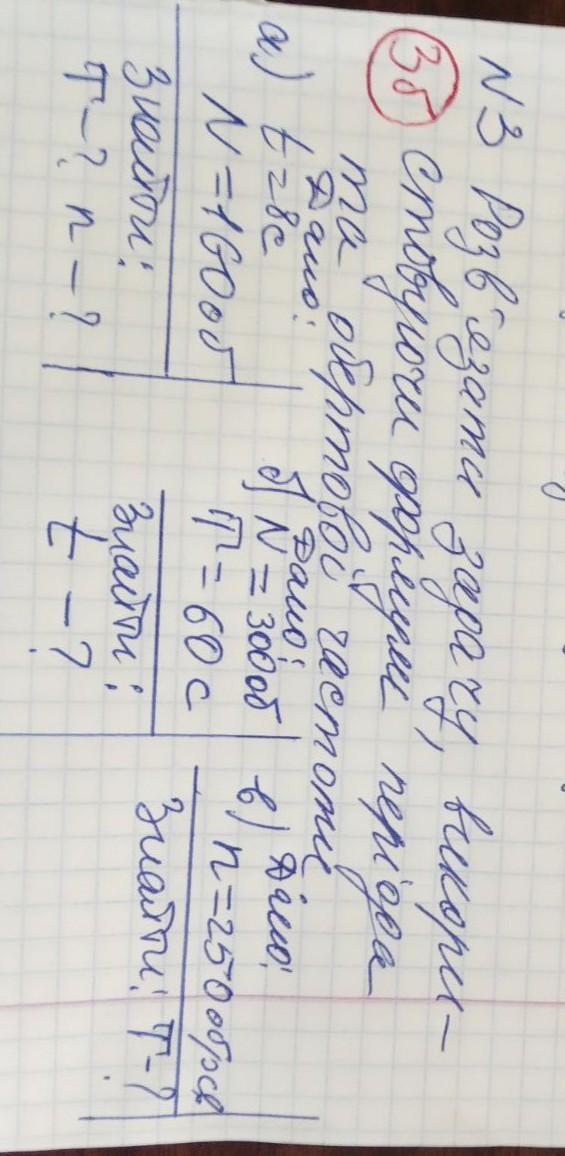 N3 Розв'язати задачу, викори-
3б стовуючи формули періода
та обертової частоти
а) Дано:
t = 8с
N = 160 об
Знайти:
T - ? n - ?
б) Дано:
N = 300 об
T = 60 с
Знайти:
t - ?
в) Дано:
n = 250
Знайти: T - ?